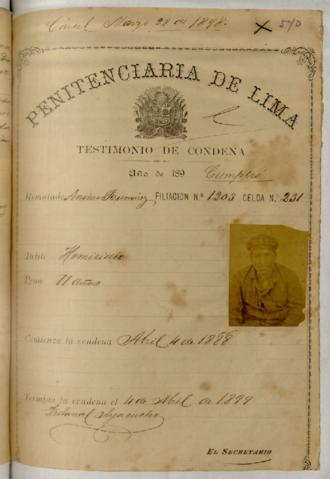 Cárcel Marzo 28 de 1898.
X 540
PENITENCIARIA DE LIMA
TESTIMONIO DE CONDENA
Año de 189 Cumplió
Rematado Andres FILIACION N.º 1203 CELDA N.º 231
Delito Homicidio
Pena 11 años
Comienza la condena Abril 4 de 1888
Termina la condena el 4 de Abril de 1899
Tribunal Ayacucho
EL SECRETARIO